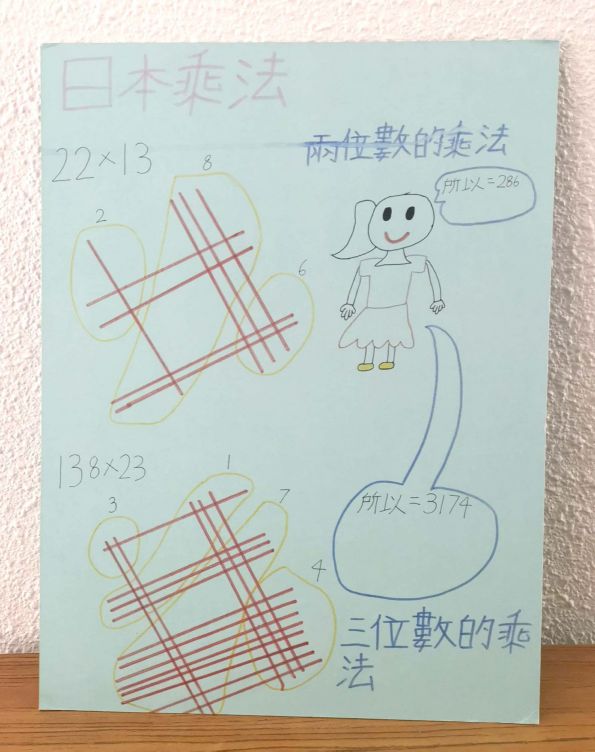 日本乘法
兩位數的乘法
22×13
8
2
6
所以=286
138×23
1
3
7
4
所以=3174
三位數的乘
法